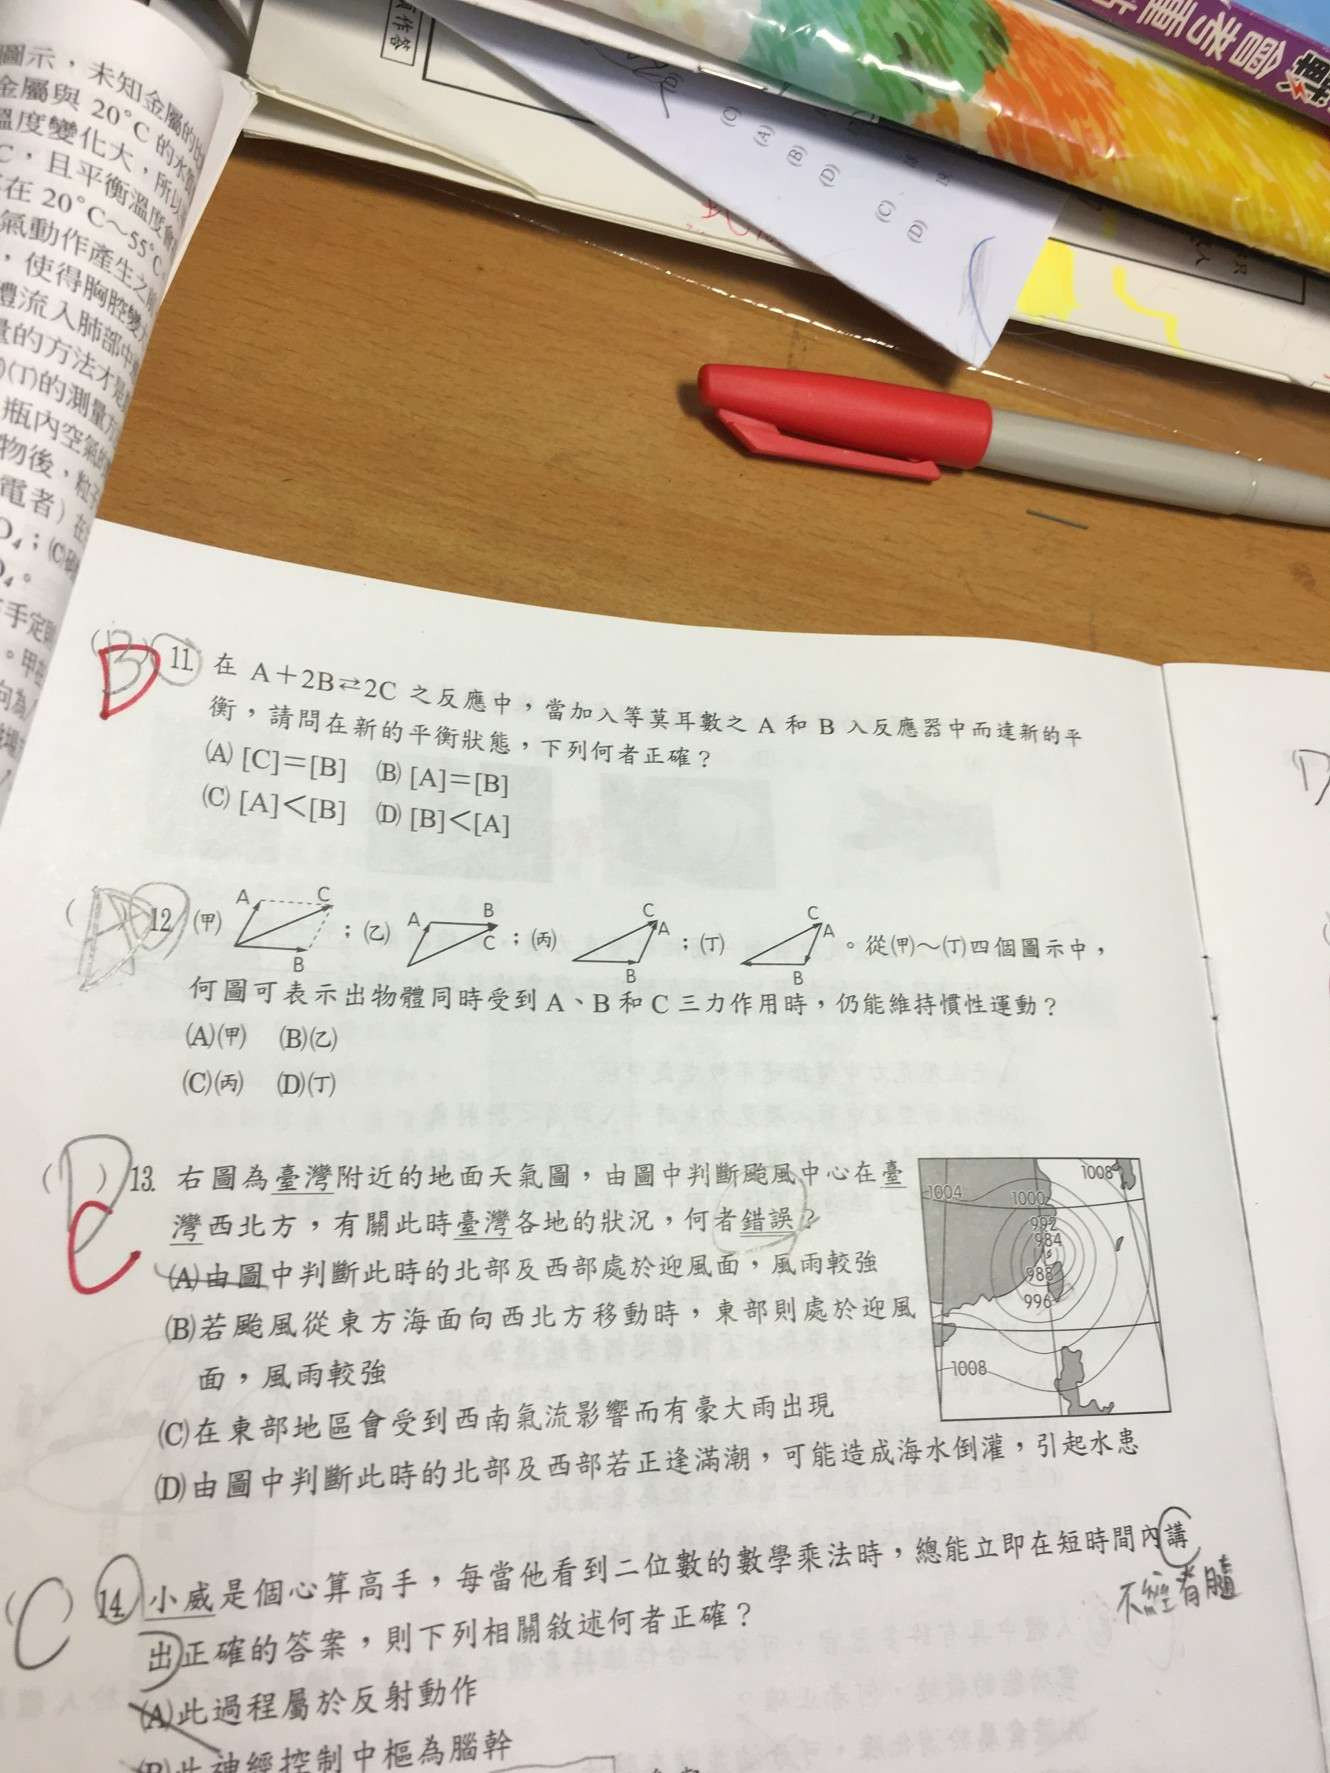 圖示，未知金屬的
金屬與 20°C 的水
溫度變化大，所以
C，且平衡溫度會
在 20°C～55°C
氣動作產生之
，使得胸腔變
體流入肺部中
量的方法才是
(丁)的測量方
瓶內空氣的
物後，粒子
電者）在
O₄；(C)
O₄。
手定
。甲在
向為
作答
會考重
(C)
(A)
(B)
(D)
(C)
(D)
(B)
D
11. 在 A＋2B⇄2C 之反應中，當加入等莫耳數之 A 和 B 入反應器中而達新的平
衡，請問在新的平衡狀態，下列何者正確？
(A) [C]＝[B] (B) [A]＝[B]
(C) [A]＜[B] (D) [B]＜[A]
12. (甲) A C B ；(乙) A B C ；(丙) C A B ；(丁) C A B 。從(甲)～(丁)四個圖示中，
何圖可表示出物體同時受到 A、B 和 C 三力作用時，仍能維持慣性運動？
(A)(甲) (B)(乙)
(C)(丙) (D)(丁)
(D)
C
13. 右圖為臺灣附近的地面天氣圖，由圖中判斷颱風中心在臺
灣西北方，有關此時臺灣各地的狀況，何者錯誤？
(A)由圖中判斷此時的北部及西部處於迎風面，風雨較強
(B)若颱風從東方海面向西北方移動時，東部則處於迎風
面，風雨較強
(C)在東部地區會受到西南氣流影響而有豪大雨出現
(D)由圖中判斷此時的北部及西部若正逢滿潮，可能造成海水倒灌，引起水患
1008
1004
1000
992
984
988
996
1008
(C) 14. 小威是個心算高手，每當他看到二位數的數學乘法時，總能立即在短時間內講
出正確的答案，則下列相關敘述何者正確？
不經脊髓
(A)此過程屬於反射動作
(B)此神經控制中樞為腦幹
D